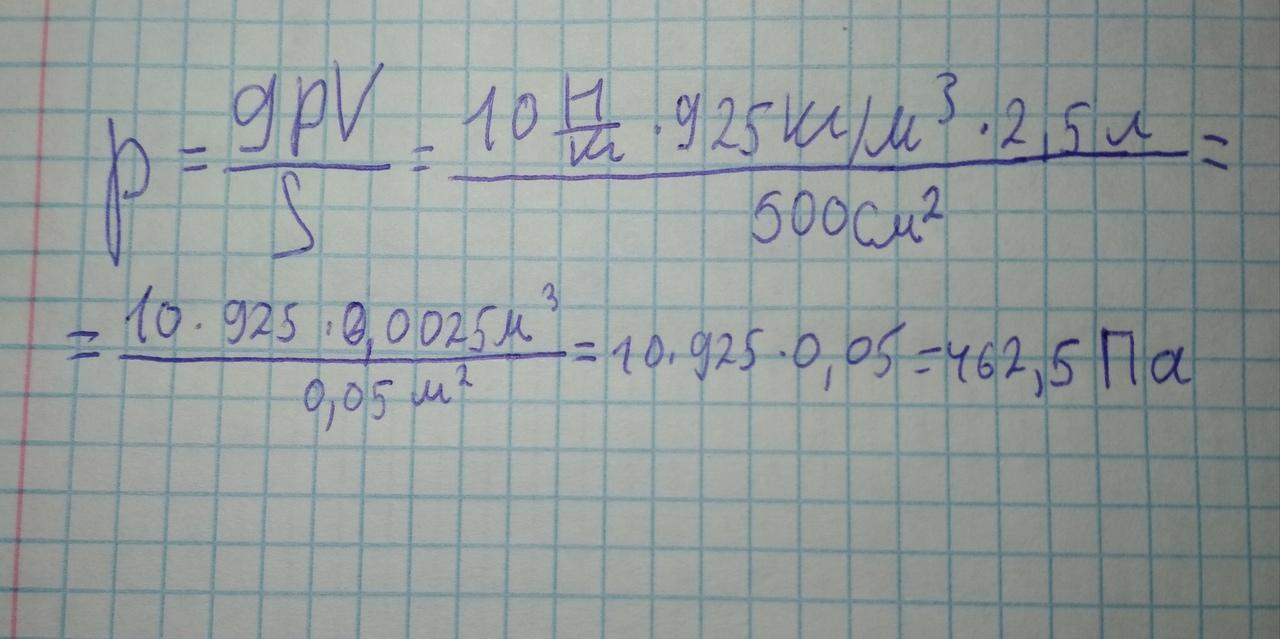 p = gρV/S = 10 Н/кг · 925 кг/м³ · 2,5 л / 500 см² =
= 10 · 925 · 0,0025 м³ / 0,05 м² = 10 · 925 · 0,05 = 462,5 Па